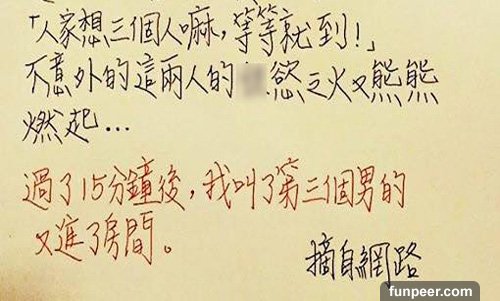 「人家想三個人嘛,等等就到!」
不意外的這兩人的 慾之火又熊熊
燃起...
過了15分鐘後,我叫了第三個男的
又進了房間。
摘自網路
funpeer.com